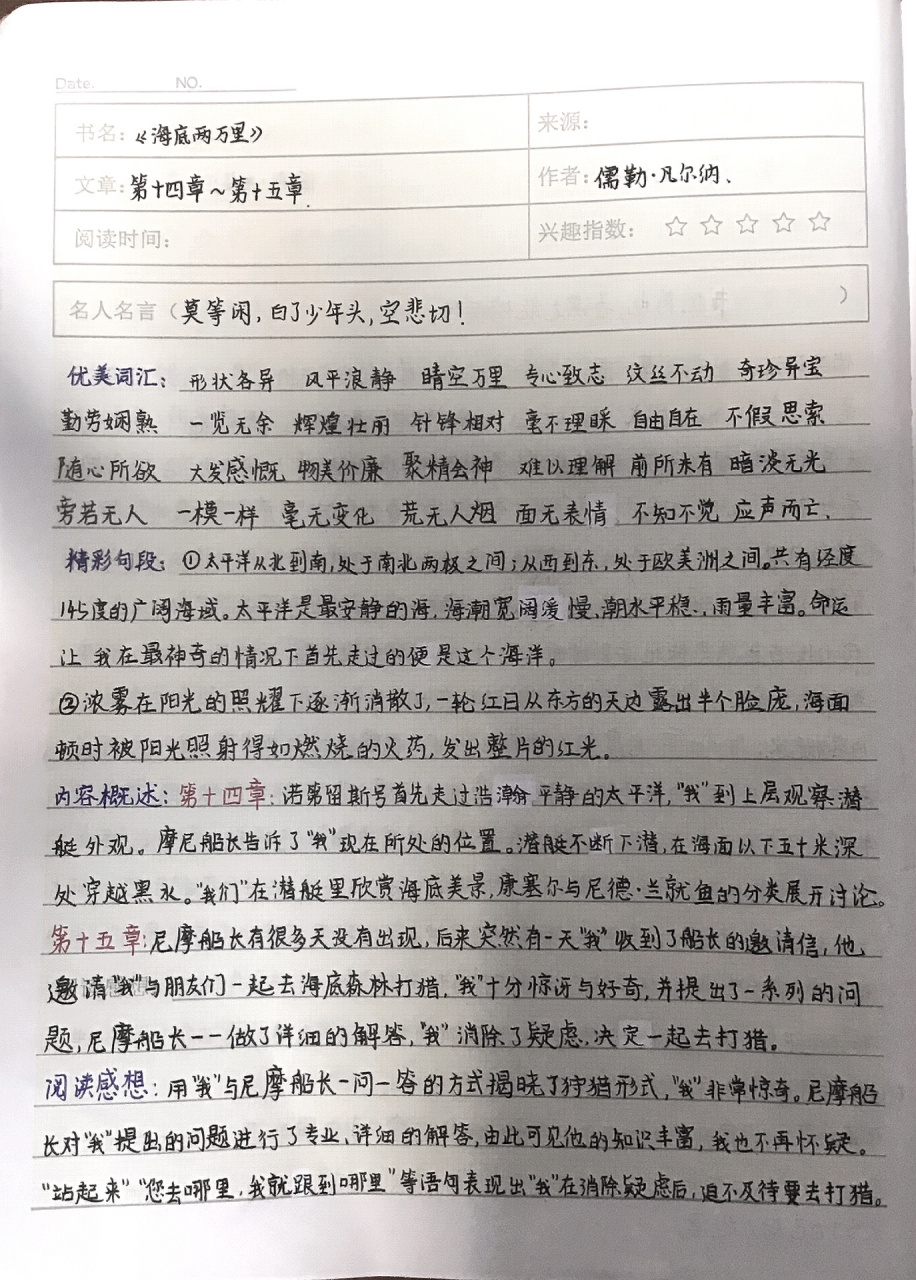 Date. NO.
书名:《海底两万里》 来源:
文章:第十四章～第十五章. 作者:儒勒·凡尔纳、
阅读时间: 兴趣指数: ☆ ☆ ☆ ☆ ☆
名人名言(莫等闲,白了少年头,空悲切! )
优美词汇: 形状各异 风平浪静 晴空万里 专心致志 纹丝不动 奇珍异宝
勤劳娴熟 一览无余 辉煌壮丽 针锋相对 毫不理睬 自由自在 不假思索
随心所欲 大发感慨 物美价廉 聚精会神 难以理解 前所未有 暗淡无光
旁若无人 一模一样 毫无变化 荒无人烟 面无表情 不知不觉 应声而亡.
精彩句段: ①太平洋从北到南,处于南北两极之间;从西到东,处于欧美洲之间。共有经度
145度的广阔海域。太平洋是最安静的海,海潮宽阔缓慢、潮水平稳、雨量丰富。命运
让我在最神奇的情况下首先走过的便是这个海洋。
②浓雾在阳光的照耀下逐渐消散了,一轮红日从东方的天边露出半个脸庞,海面
顿时被阳光照射得如燃烧的火药,发出整片的红光。
内容概述:第十四章:诺第留斯号首先走过浩瀚平静的太平洋,"我"到上层观察潜
艇外观。摩尼船长告诉了"我"现在所处的位置。潜艇不断下潜,在海面以下五十米深
处穿越黑水。"我们"在潜艇里欣赏海底美景,康塞尔与尼德·兰就鱼的分类展开讨论。
第十五章:尼摩船长有很多天没有出现,后来突然有一天"我"收到了船长的邀请信,他
邀请"我"与朋友们一起去海底森林打猎,"我"十分惊讶与好奇,并提出了一系列的问
题,尼摩船长一一做了详细的解答,"我"消除了疑虑,决定一起去打猎。
阅读感想:用"我"与尼摩船长一问一答的方式揭晓了狩猎形式,"我"非常惊奇。尼摩船
长对"我"提出的问题进行了专业、详细的解答,由此可见他的知识丰富,我也不再怀疑。
"站起来""您去哪里,我就跟到哪里"等语句表现出"我"在消除疑虑后,迫不及待要去打猎。